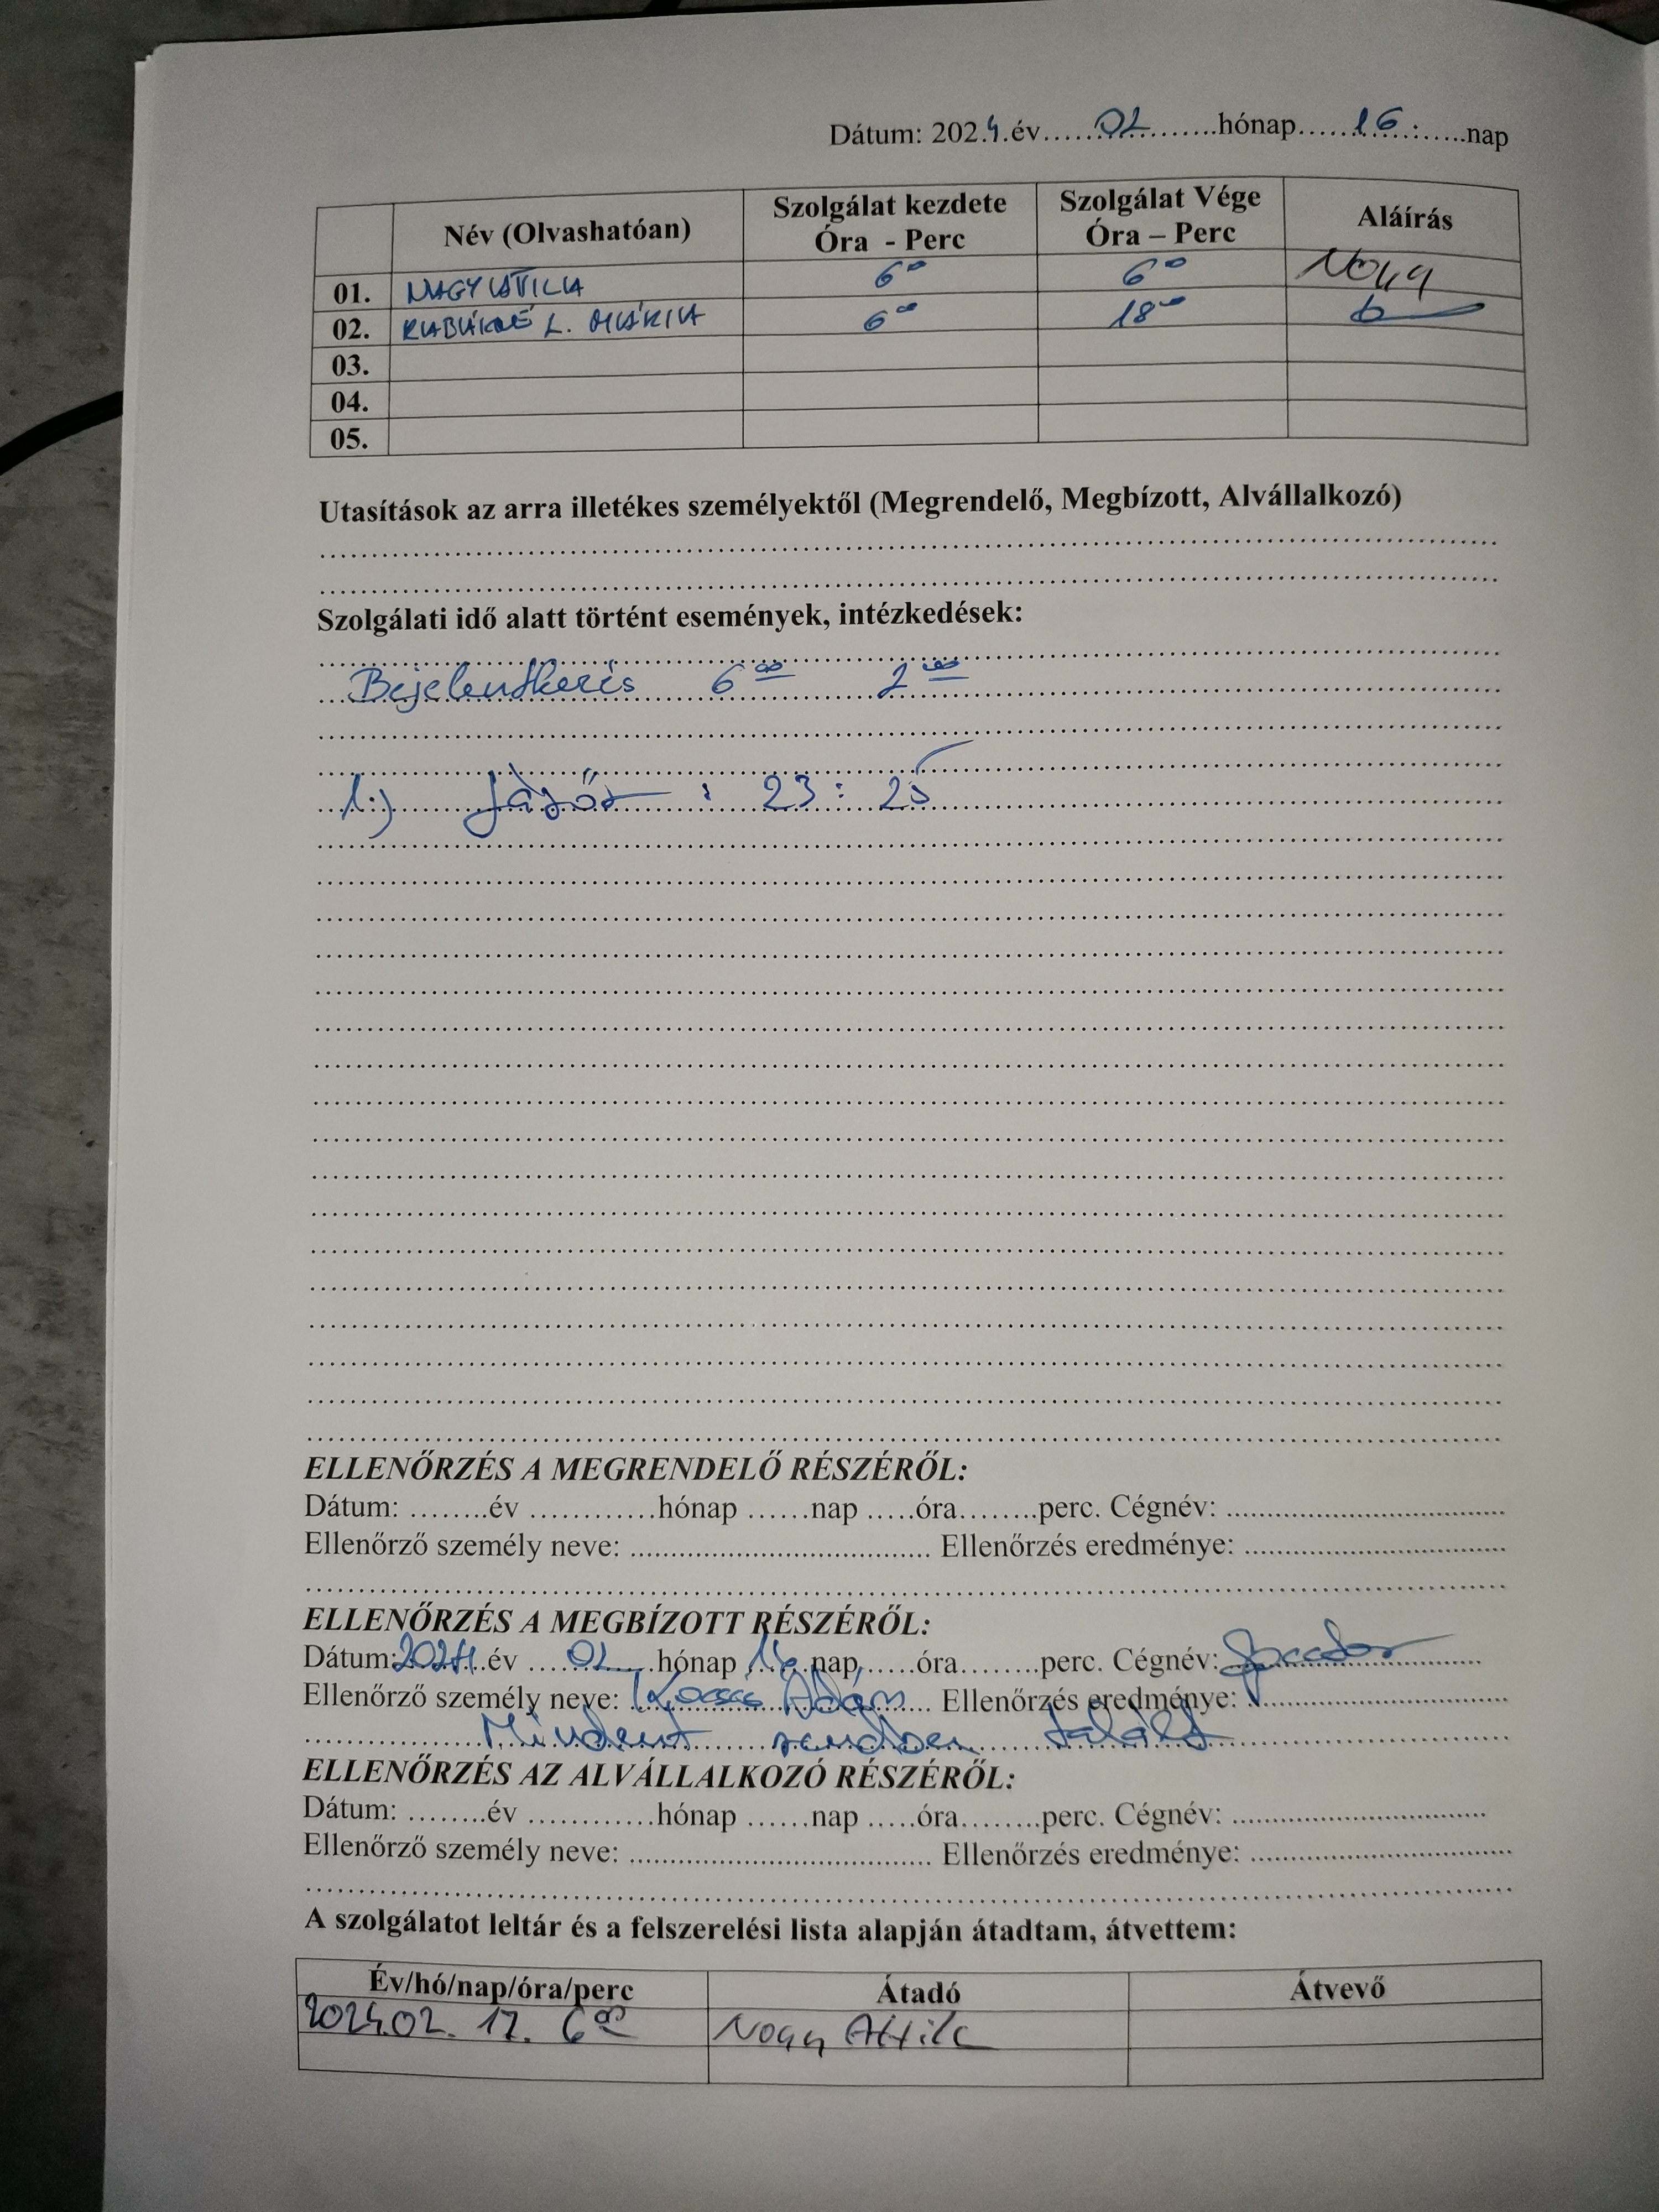 Dátum: 202.4.év......02........hónap......16.:.....nap
Név (Olvashatóan) Szolgálat kezdete Óra - Perc Szolgálat Vége Óra – Perc Aláírás
01. NAGY ATTILA 6⁰⁰ 6⁰⁰ Nagy
02. L. MÁRIA 6⁰⁰ 18⁰⁰
03.
04.
05.
Utasítások az arra illetékes személyektől (Megrendelő, Megbízott, Alvállalkozó)
Szolgálati idő alatt történt események, intézkedések:
Bejelentkezés 6⁰⁰ 2⁰⁰
1.) Járőr : 23 : 25
ELLENŐRZÉS A MEGRENDELŐ RÉSZÉRŐL:
Dátum: ........év ............hónap ......nap .....óra........perc. Cégnév: ....................
Ellenőrző személy neve: .................... Ellenőrzés eredménye: ....................
ELLENŐRZÉS A MEGBÍZOTT RÉSZÉRŐL:
Dátum: 2024 .év ....02....hónap 16 nap ......óra........perc. Cégnév:
Ellenőrző személy neve: Kocsis Ádám Ellenőrzés eredménye:
Mindent rendben talált
ELLENŐRZÉS AZ ALVÁLLALKOZÓ RÉSZÉRŐL:
Dátum: ........év ............hónap ......nap .....óra........perc. Cégnév: ....................
Ellenőrző személy neve: .................... Ellenőrzés eredménye: ....................
A szolgálatot leltár és a felszerelési lista alapján átadtam, átvettem:
Év/hó/nap/óra/perc Átadó Átvevő
2024.02. 17. 6⁰⁰ Nagy Attila